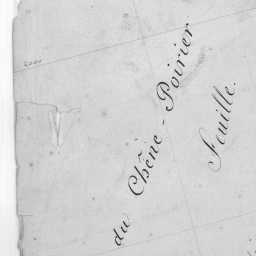 du Chêne-Poirier
Feuille.